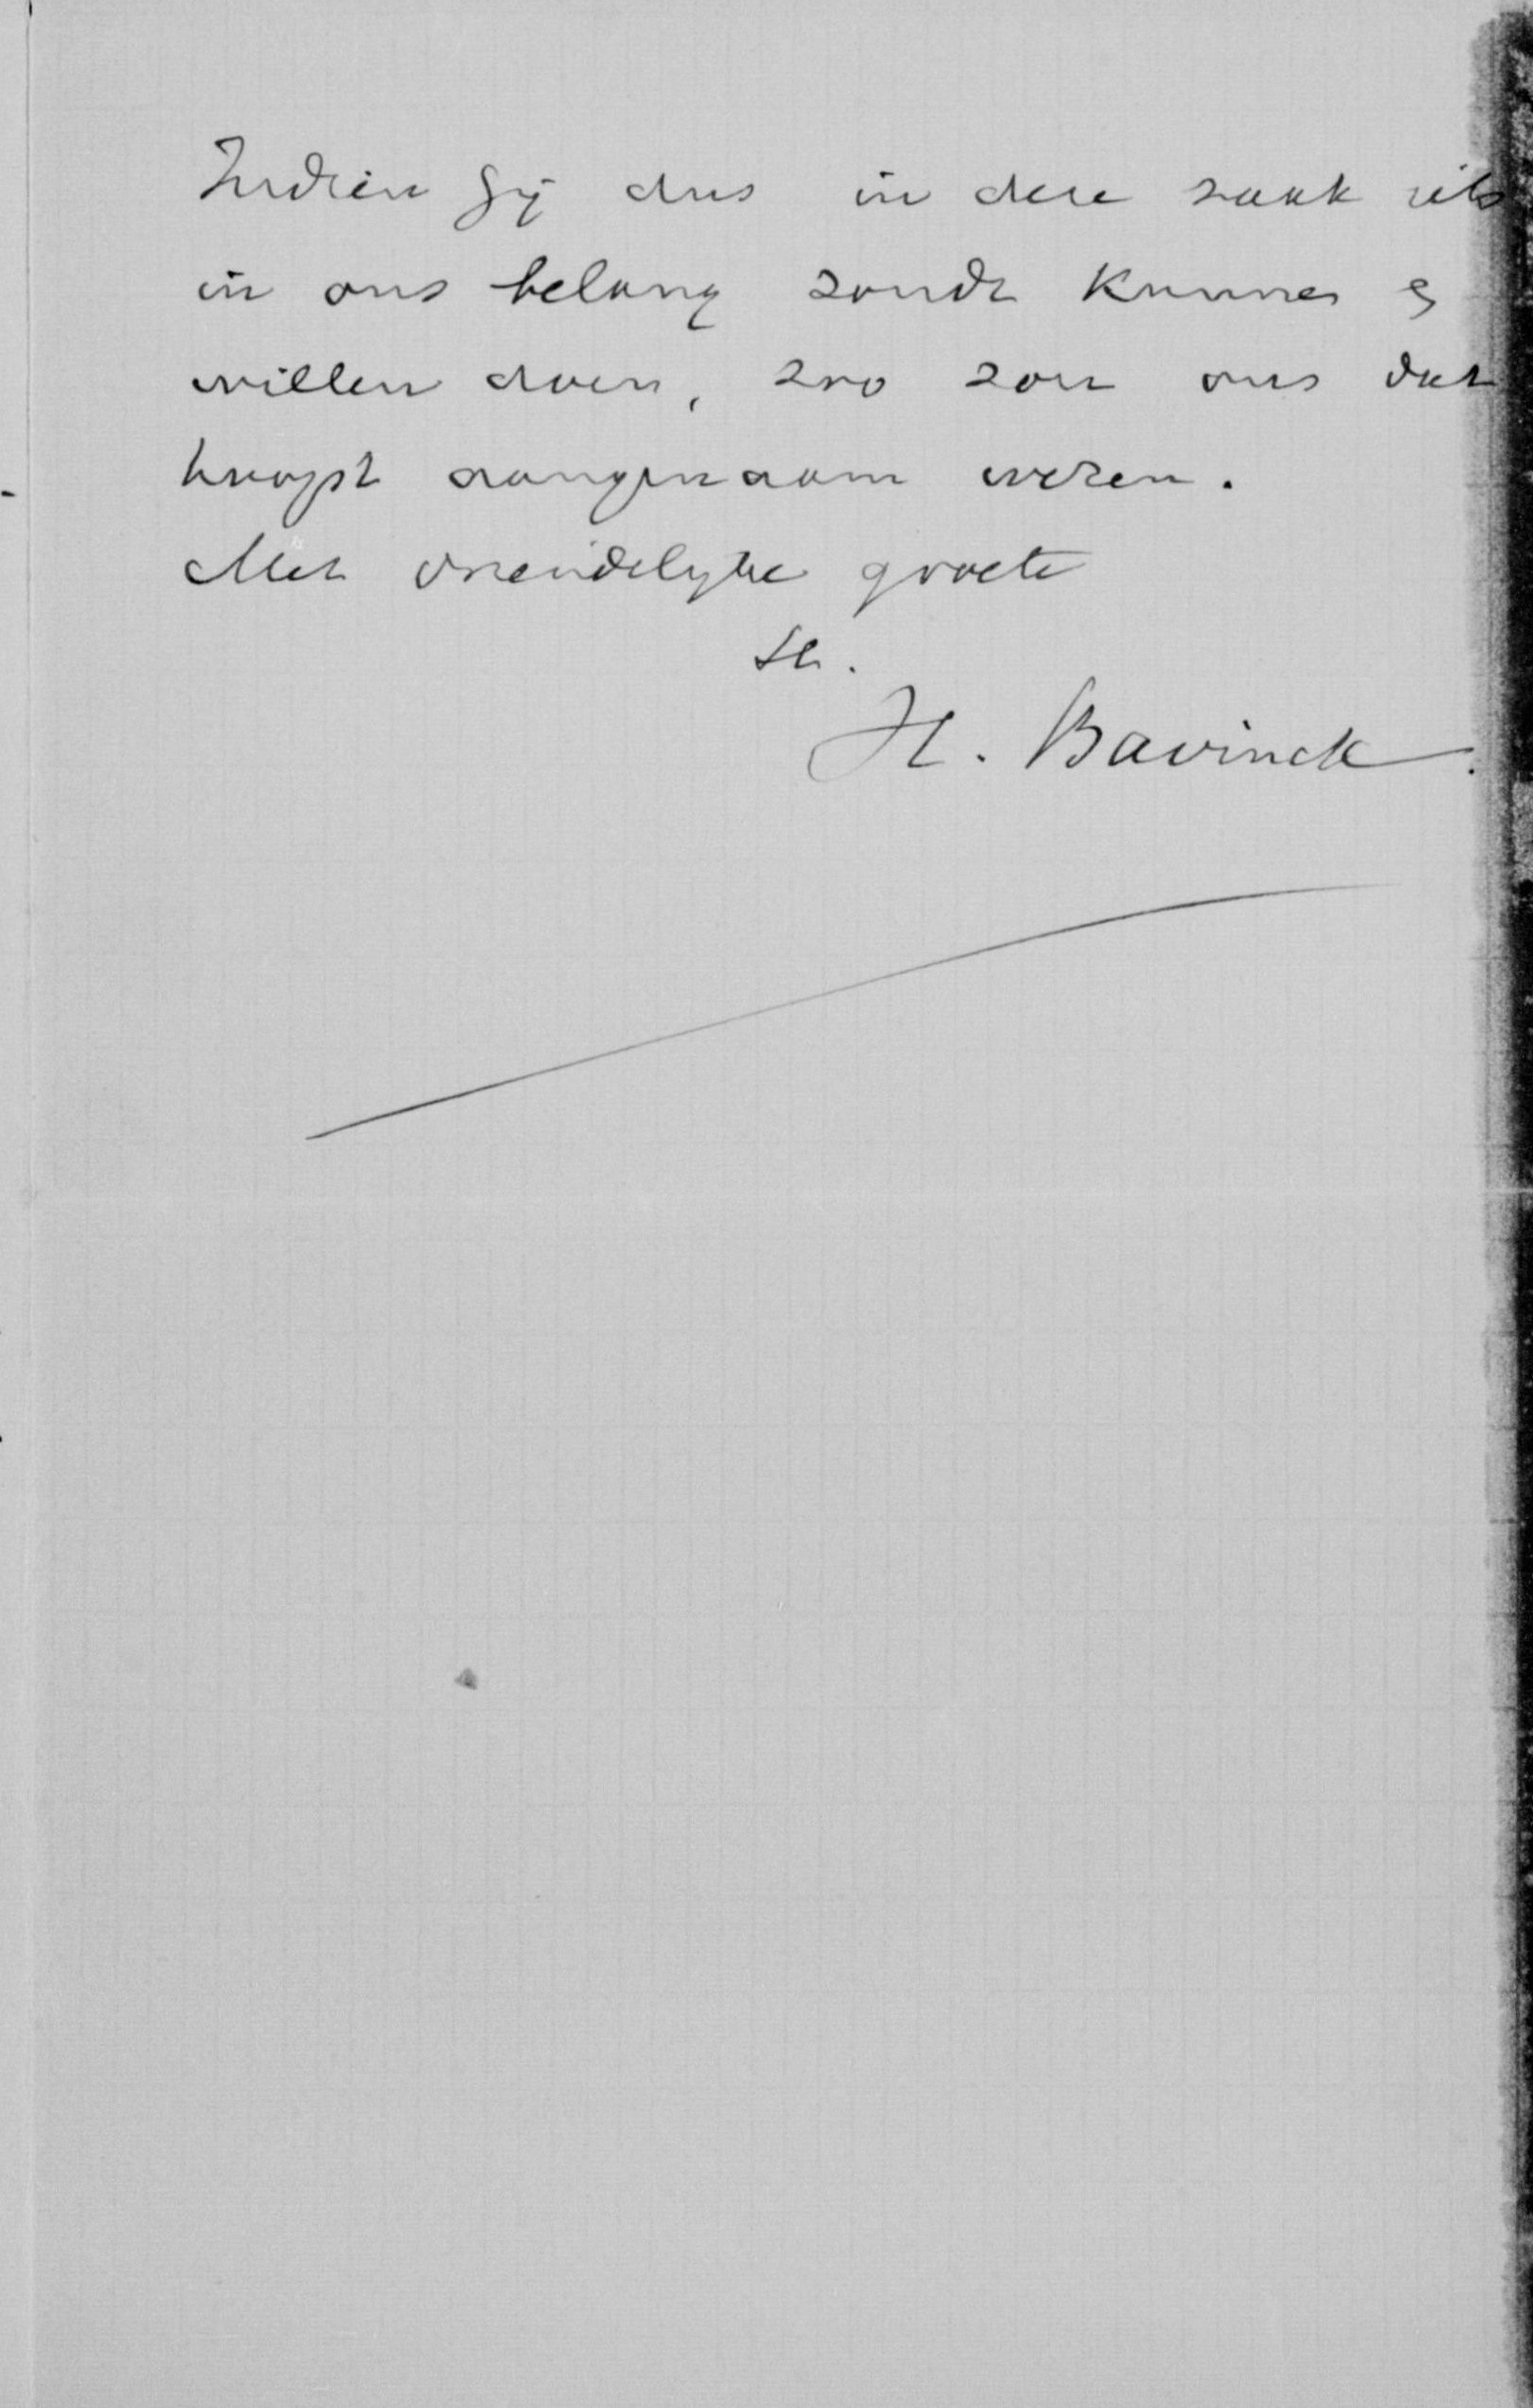 Indien gij dus in deze zaak iets
in ons belang zoudt kunnen en
willen doen, zoo zou ons dat
hoogst aangenaam wezen.
Met vriendelijke groete
H. Bavinck.